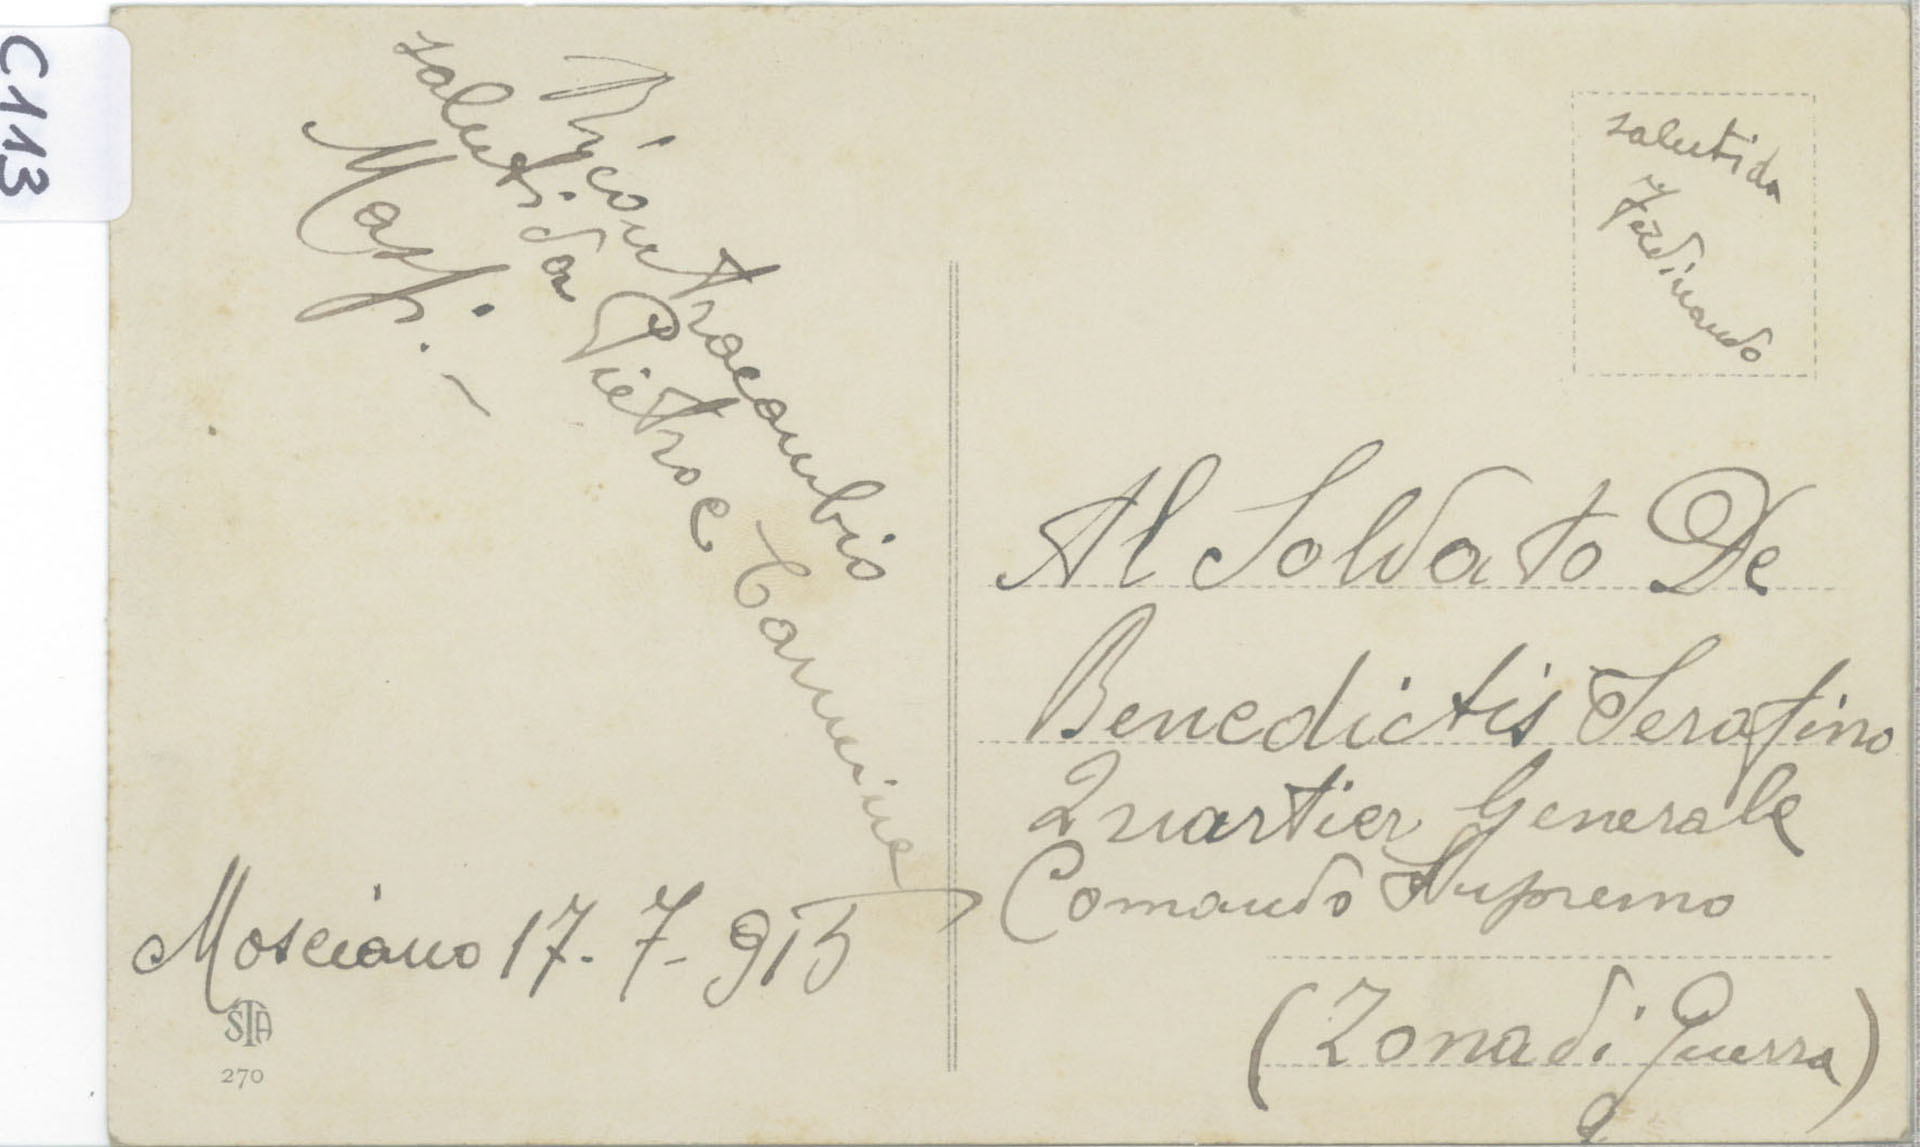 C113
Ricontracambio
saluti da Pietro e Carmine
Masi. -
Mosciano 17-7-915
STA
270
saluti da
Ferdinando
Al Soldato De
Benedictis Serafino
Quartier Generale
Comando Supremo
(Zona di Guerra)